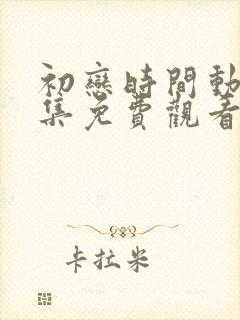 初戀時間動
集免費觀看
卡拉米